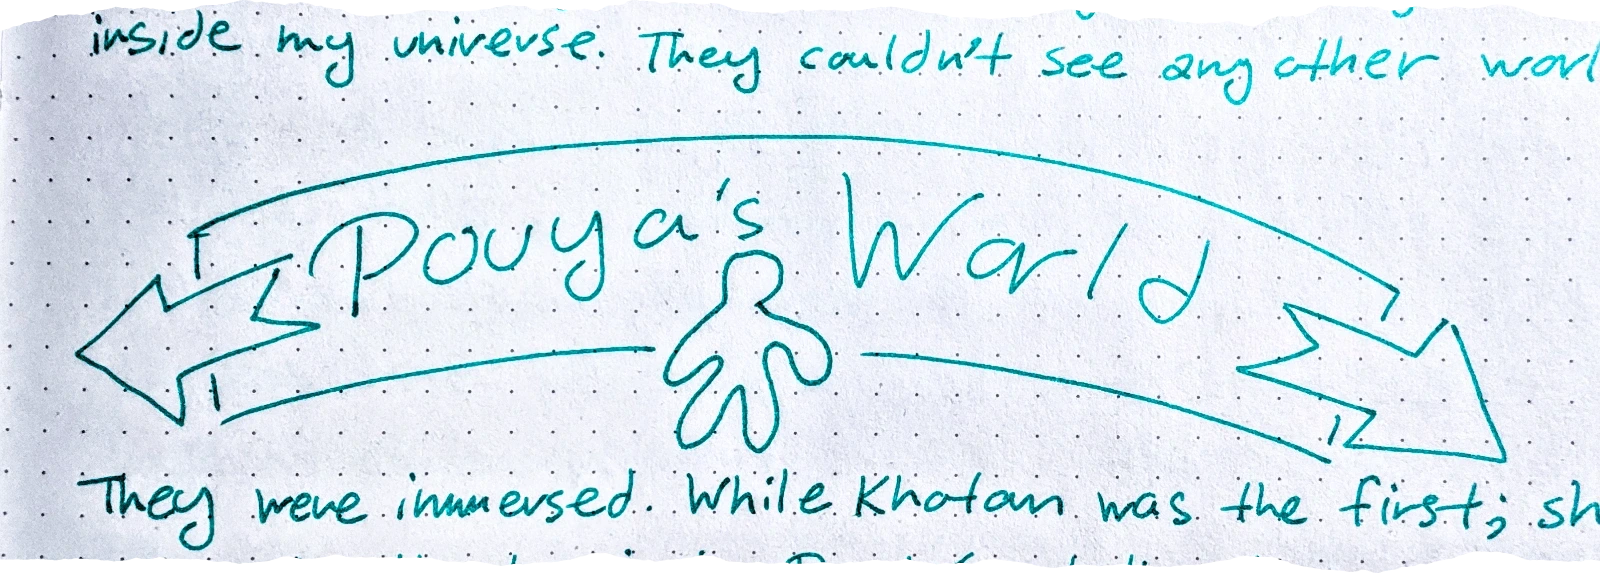 inside my universe. They couldn't see any other worl
Pouya's World
They were immersed. While Khatan was the first; sh